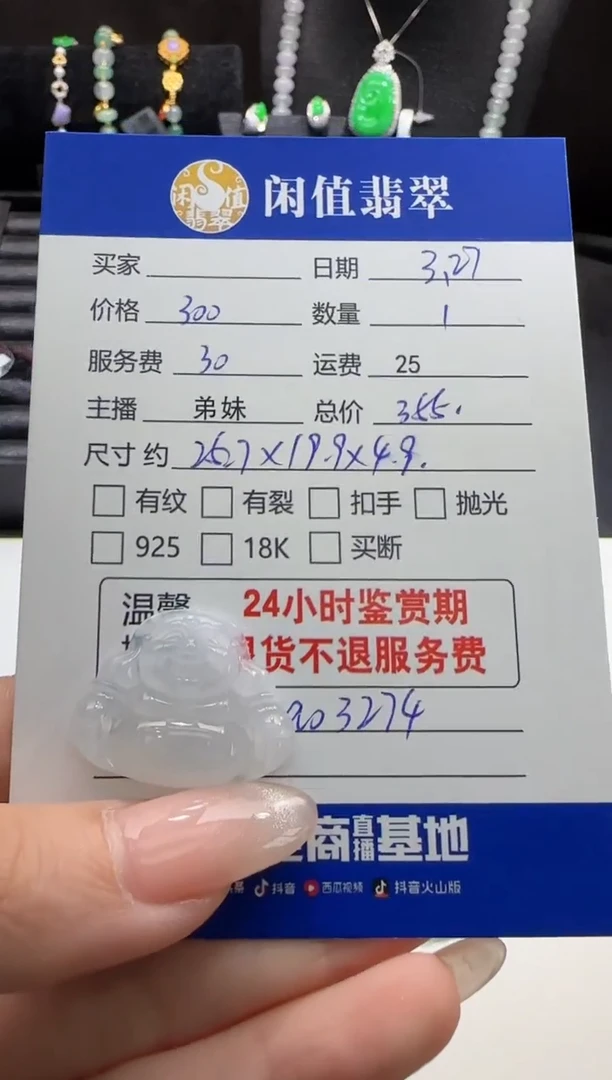 闲值翡翠
闲值翡翠
买家 日期 3.27
价格 300 数量 1
服务费 30 运费 25
主播 弟妹 总价 355.
尺寸约 25.7×19.9×4.9.
有纹 有裂 扣手 抛光
925 18K 买断
温馨 24小时鉴赏期
货不退服务费
03274
商直播基地
抖音 西瓜视频 抖音火山版